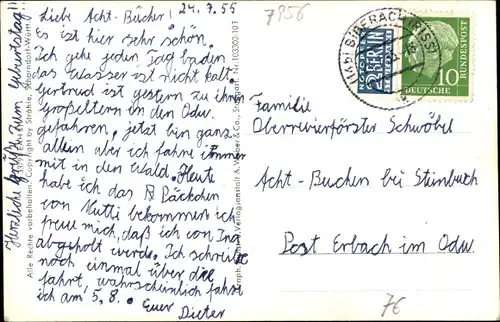 24.7.55
Liebe Acht-Bucher!
es ist hier sehr schön.
Ich gehe jeden Tag baden
das Wasser ist nicht kalt.
Gertrud ist gestern zu ihren
Großeltern in den Odw.
gefahren, jetzt bin ganz
allein aber ich fahre immer
mit in den Wald. Heute
habe ich das Päckchen
von Mutti bekommen ich
freue mich, daß ich von Ing
abgeholt werde. Ich schreibe
noch einmal über die
fahrt, wahrscheinlich fahre
ich am 5.8. Euer
Dieter
Herzliche Grüße zum Geburtstag!!
Alle Rechte vorbehalten. Copyright by Strähle, Schorndorf-Württ.
7956
BIBERACH (RISS)
NOTOPFER
2 BERLIN
STEUERMARKE
10
DEUTSCHE
BUNDESPOST
Familie
Oberrevierförster Schwöbel
Acht-Buchen bei Steinbuch
Post Erbach im Odw.
7€